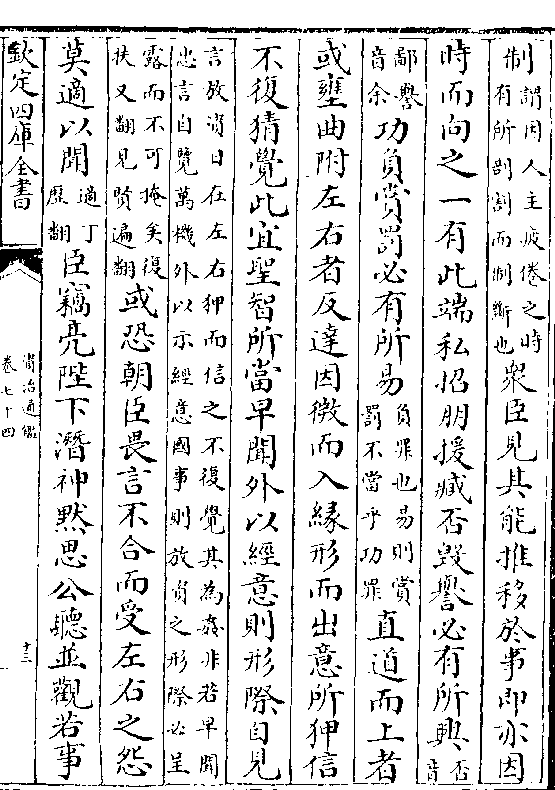 制謂因人主疲倦之時
有所剖割而制斷也衆臣見其能推移於事即亦因
時而向之一有此端私招朋援臧否毀譽必有所興否音
鄙譽
音余功負賞罰必有所易負罪也易則賞
罰不當乎功罪直道而上者
或壅曲附左右者反達因微而入緣形而出意所狎信
不復猜覺此宜聖智所當早聞外以經意則形際自見
言放資日在左右狎而信之不復覺其為姦非若早聞
忠言自覽萬機外以示經意國事則放資之形際必呈
露而不可掩矣復
扶又翻見賢遍翻或恐朝臣畏言不合而受左右之怨
莫適以聞適丁
歷翻臣竊亮陛下潛神默思公聽並觀若事
欽定四庫全書
資治通鑑
卷七十四
十三